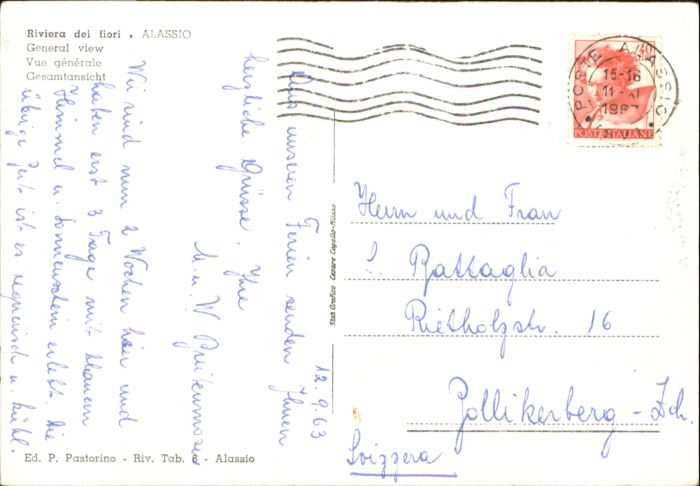 Riviera dei fiori . ALASSIO
General view
Vue générale
Gesamtansicht
12.9.63
Aus unseren Ferien senden Ihnen
herzliche Grüsse, Ihre
M. u. W.
Wir sind nun 2 Wochen hier und
haben erst 3 Tage mit blauem
Himmel u. Sonnenschein erlebt, die
übrige Zeit ist es regnerisch u. kühl.
Ed. P. Pastorino - Riv. Tab. 6 - Alassio
Stab. Grafico Cesare Capello-Milano
POSTE ALASSIO
15-16
1963
40
POSTE ITALIANE
Herrn und Frau
Rattaglia
Rietholzstr. 16
Zollikerberg - Zch.
Svizzera